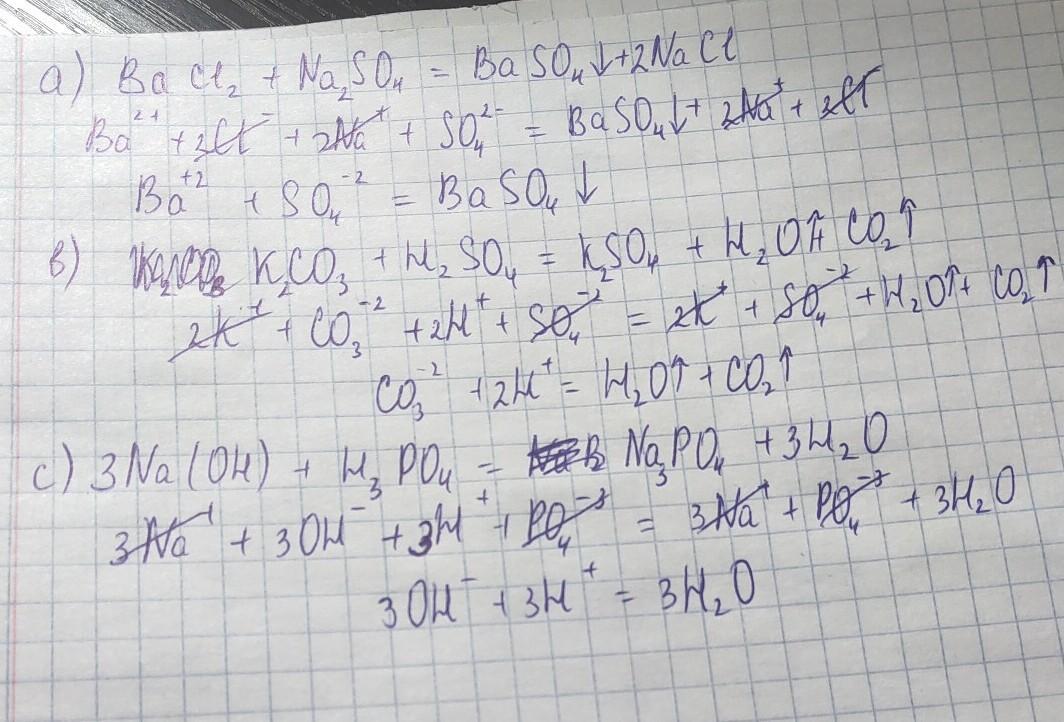 a) BaCl₂ + Na₂SO₄ = BaSO₄↓+2NaCl
Ba²⁺ + 2Cl⁻ + 2Na⁺ + SO₄²⁻ = BaSO₄↓+ 2Na⁺ + 2Cl⁻
Ba⁺² + SO₄⁻² = BaSO₄↓
в) K₂CO₃ + H₂SO₄ = K₂SO₄ + H₂O↑+ CO₂↑
2K⁺ + CO₃⁻² + 2H⁺ + SO₄⁻² = 2K⁺ + SO₄⁻² + H₂O↑+ CO₂↑
CO₃⁻² + 2H⁺ = H₂O↑ + CO₂↑
c) 3Na(OH) + H₃PO₄ = Na₃PO₄ + 3H₂O
3Na⁺ + 3OH⁻ + 3H⁺ + PO₄⁻³ = 3Na⁺ + PO₄⁻³ + 3H₂O
3OH⁻ + 3H⁺ = 3H₂O